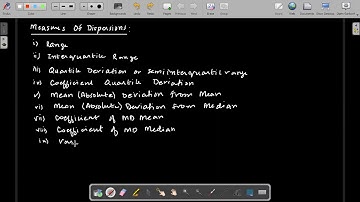 Measures Of Dispersions:
i) Range
ii) Interquantile Range
iii) Quartile Deviation or Semi interquantile range
iv) Coefficient Quartile Deviation
v) Mean (Absolute) Deviation from Mean
vi) Mean (Absolute) Deviation from Median
vii) Coefficient of MD Mean
viii) Coefficient of MD Median
ix) Var